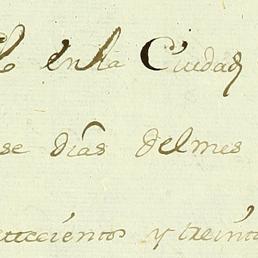 en la Ciudad
se dias del mes
cientos y treinta